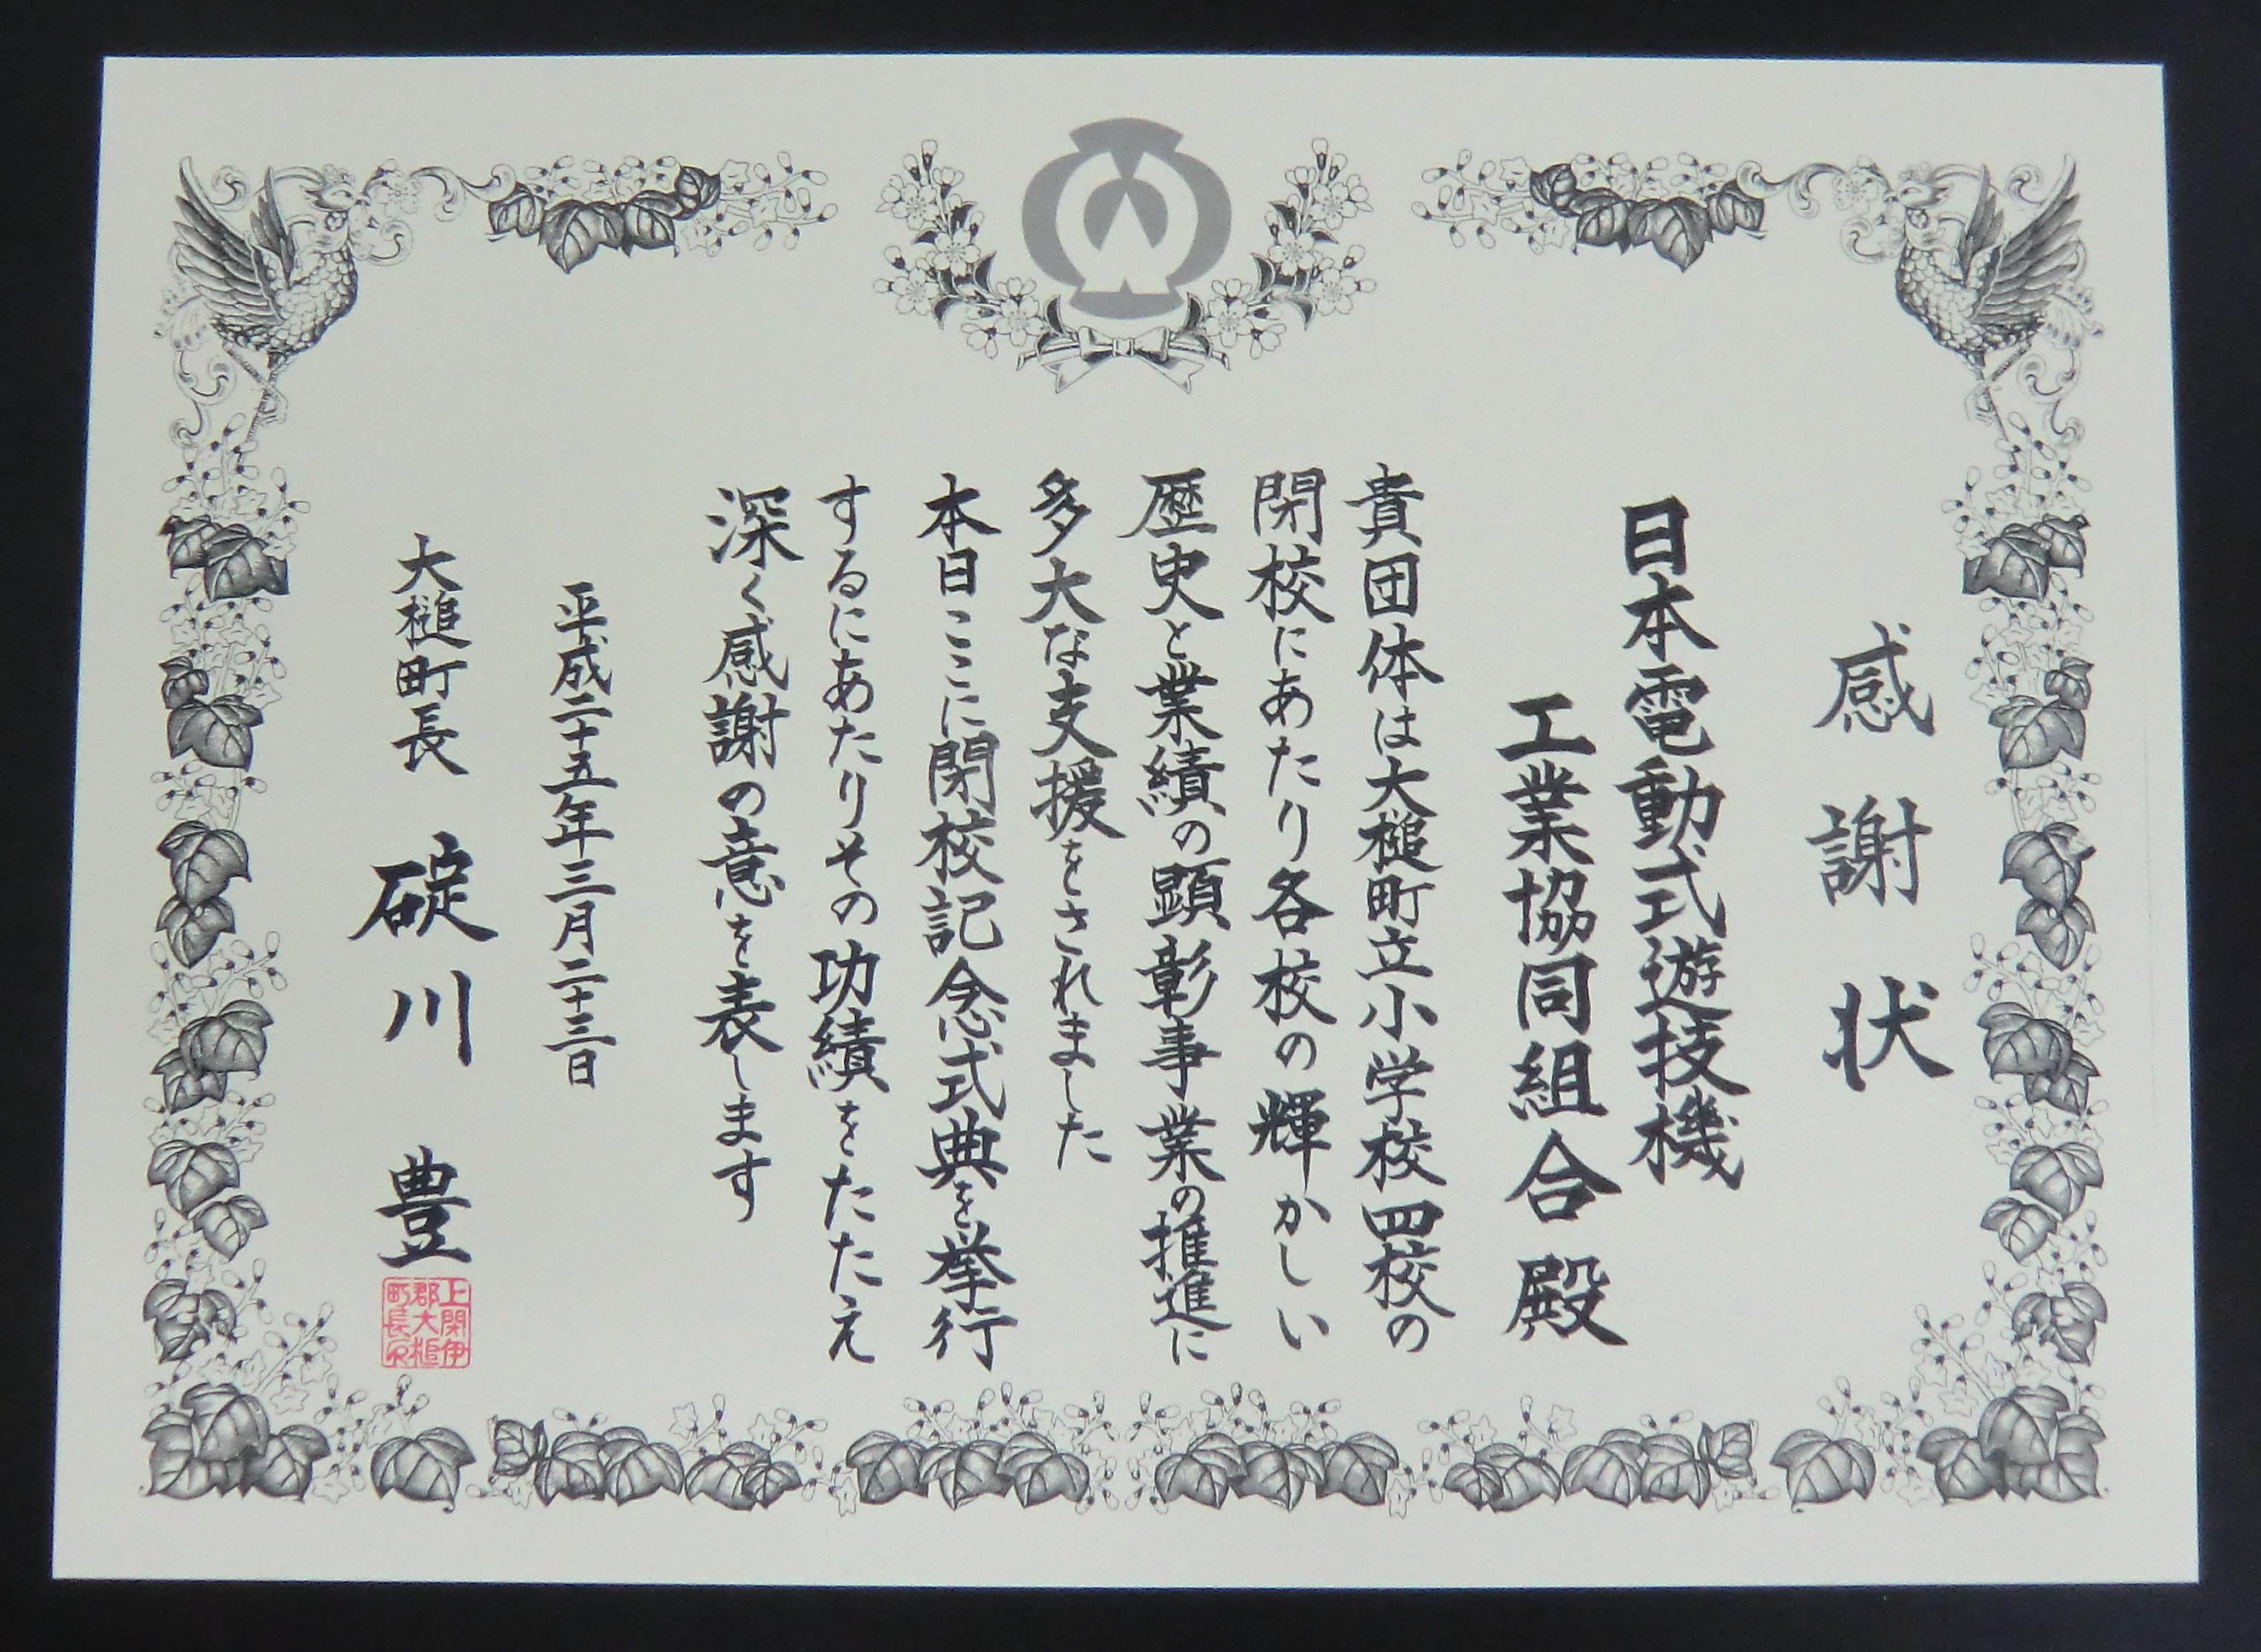 感謝状
日本電動式遊技機
工業協同組合殿
貴団体は大槌町立小学校四校の
閉校にあたり各校の輝かしい
歴史と業績の顕彰事業の推進に
多大な支援をされました
本日ここに閉校記念式典を挙行
するにあたりその功績をたたえ
深く感謝の意を表します
平成二十五年三月二十三日
大槌町長 碇川 豊
上閉伊
郡大槌
町長印